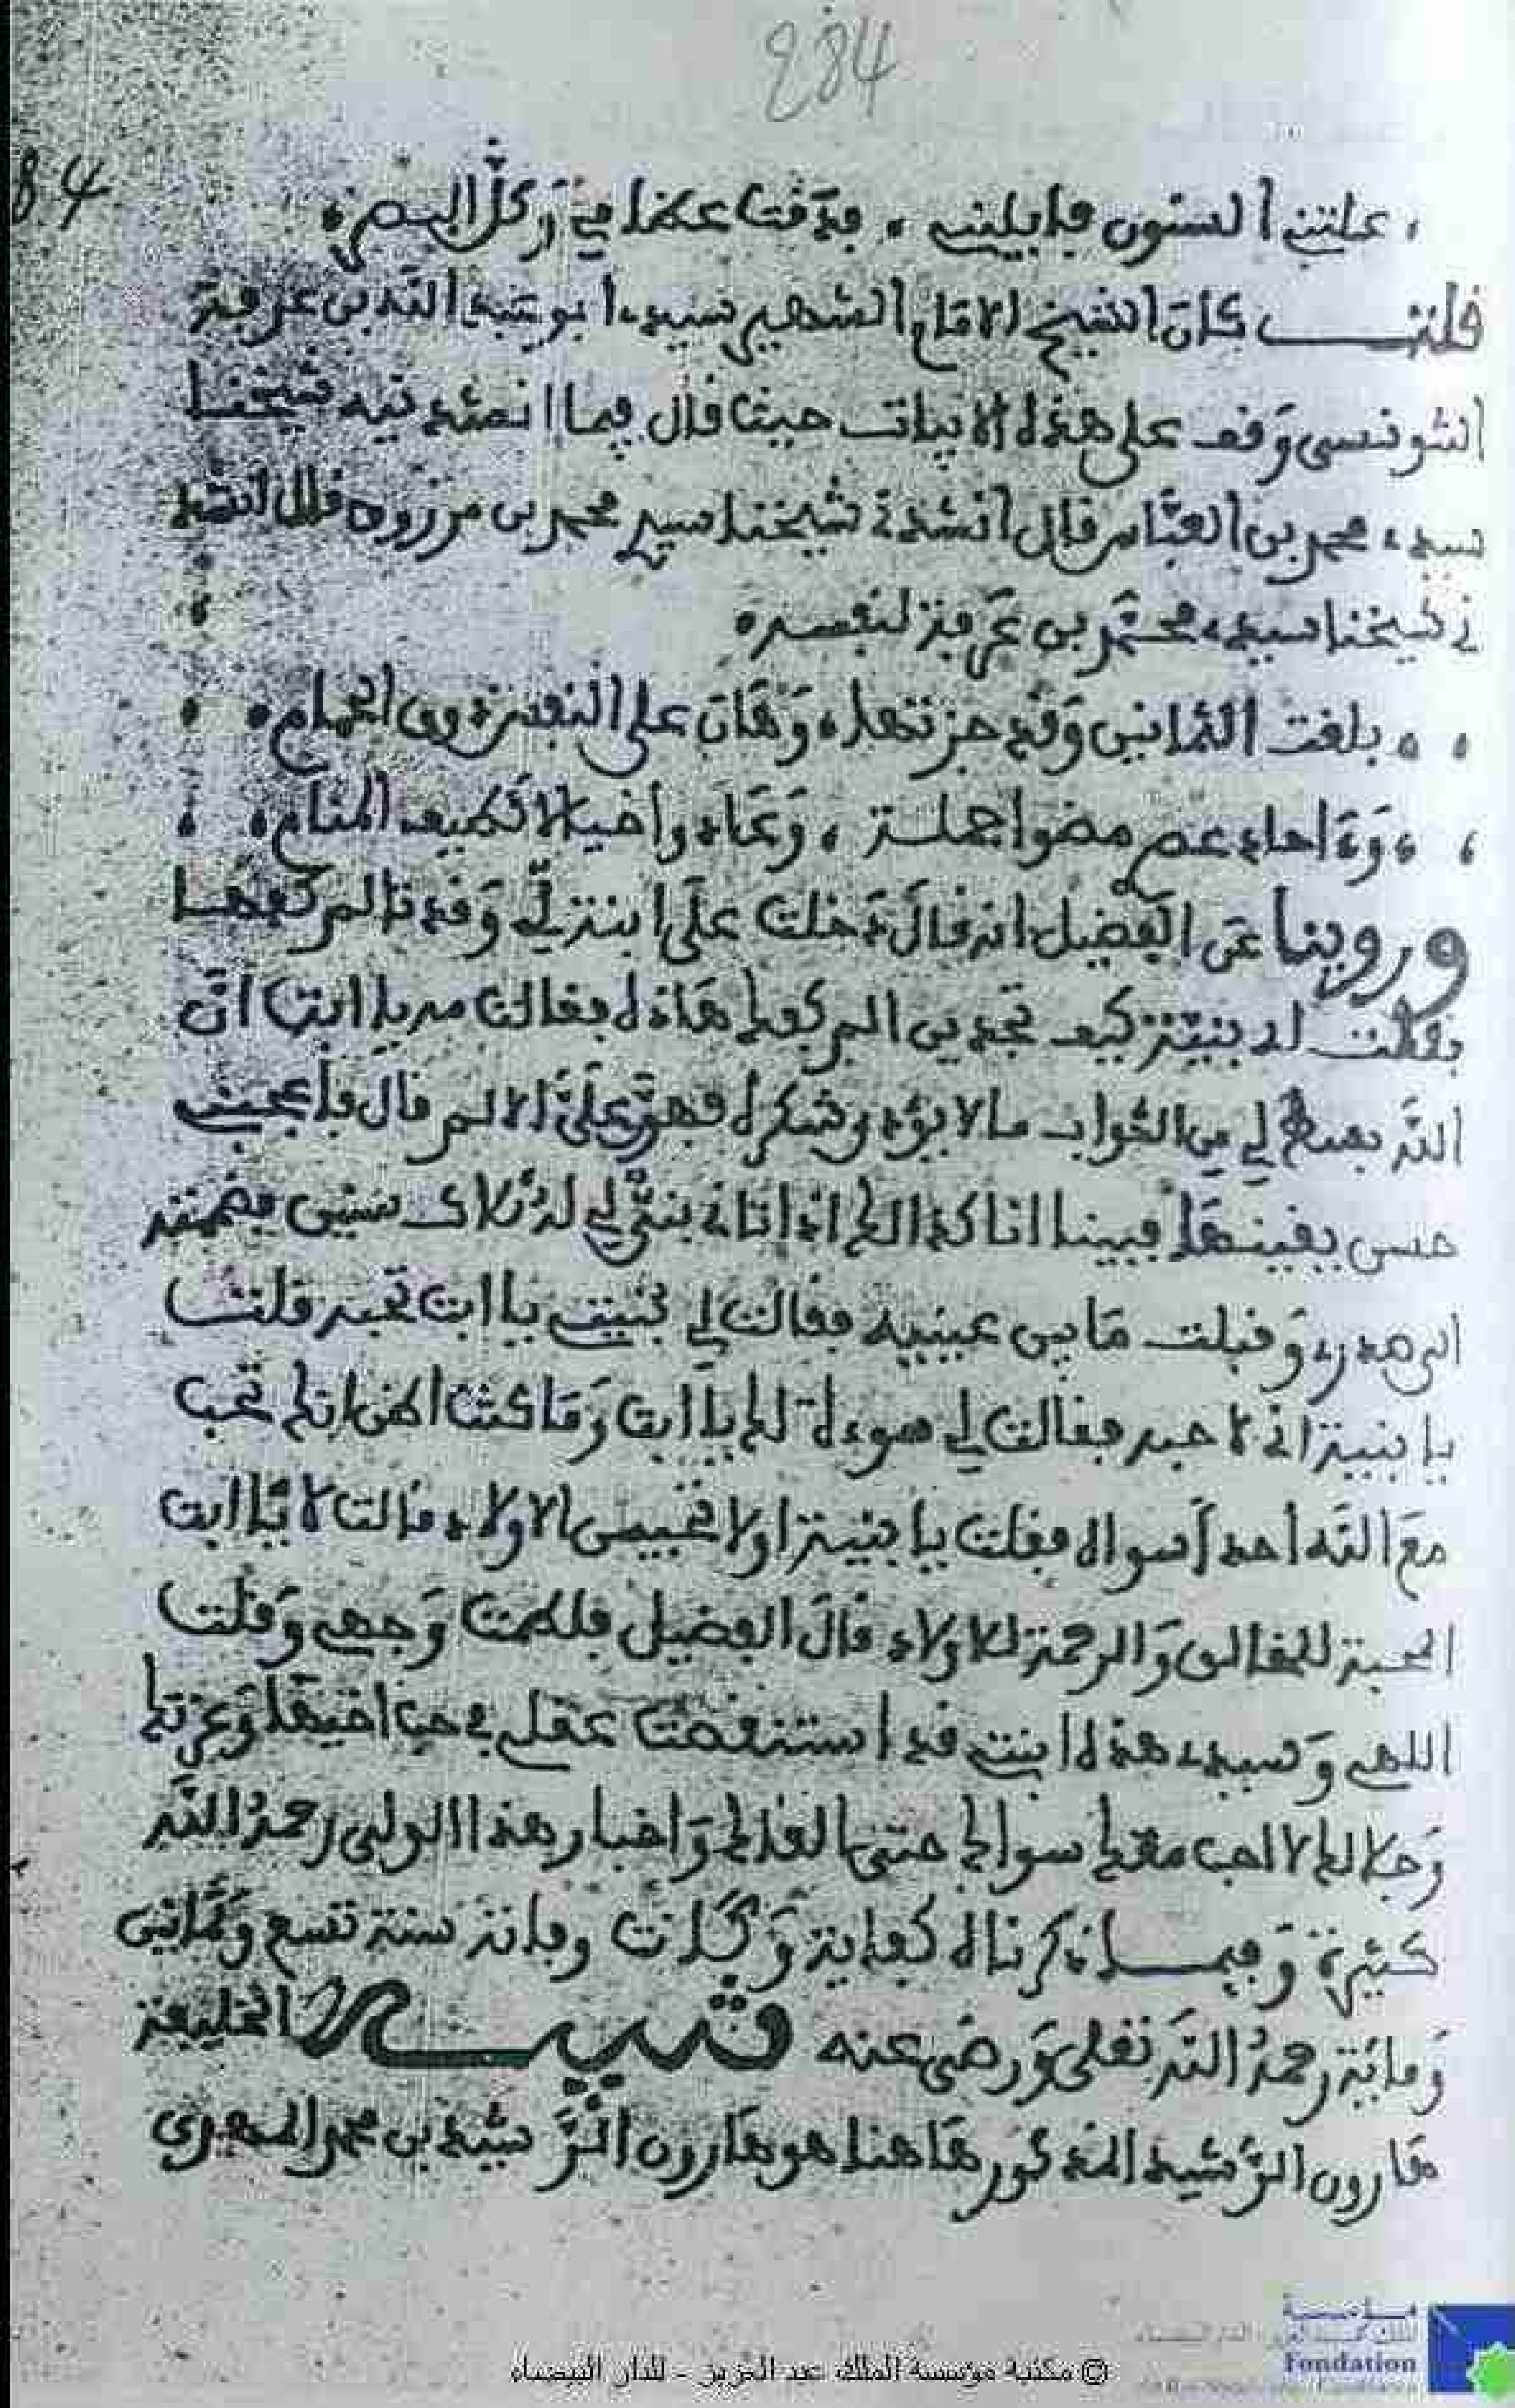 284
84
علتني السنون فأبلينني ، فدقت عظامي وكل البصر ،
قلت كان الشيخ الامام الشهير سيدي ابو عبد الله بن عرفة
التونسي وقف على هذه الابيات حيث قال فيما انشدنيه شيخنا
سيدي محمد بن العباس قال انشدني شيخنا سيدي محمد بن مرزوق قال انشد
ني شيخنا سيدي محمد بن عرفة لنفسه
بلغت الثمانين وقد جزتها ، وهان على النفس ذوق الحمام
وءاحاد عصر مضوا جملة ، وعادوا خيالا كطيف المنام
وروينا عن الفضيل انه قال دخلت على ابنة لي وقد تألم كفها
فقلت لها بنية كيف تجدين الم كفك هاذه فقالت يا ابت ان
الله بسط لي من الثواب ما لا يؤدى شكره فهون علي الالم قال فاعجبني
حسن يقينها فبينما انا كذالك اذ اتاني بني لي له ثلاث سنين فضممته
الى صدري وقبلت ما بين عينيه فقالت لي بنيتي يا ابت تحبه قلت
يا بنية اني لاحبه فقالت لي سوءة لك يا ابت وما كنت اظن انك تحب
مع الله احدا سواه فقلت يا بنية اولا تحبين الاولاد قالت لا يا ابت
المحبة للخالق والرحمة للاولاد قال الفضيل فلطمت وجهي وقلت
اللهي وسيدي هذه ابنتي قد استنقصت عقلي في حب اخيها وعزتك
وجلالك لا احب معك سواك حتى القاك واخبار هذا الولي رحمه الله
كثيرة وفيما ذكرناه كفاية وكانت وفاته سنة تسع وثمانين
ومائة رحمه الله تعلى ورضي عنه تنبيه الخليفة
هارون الرشيد المذكور هاهنا هو هارون الرشيد بن محمد المهدي
© مكتبة مؤسسة الملك عبد العزيز - الدار البيضاء
Fondation